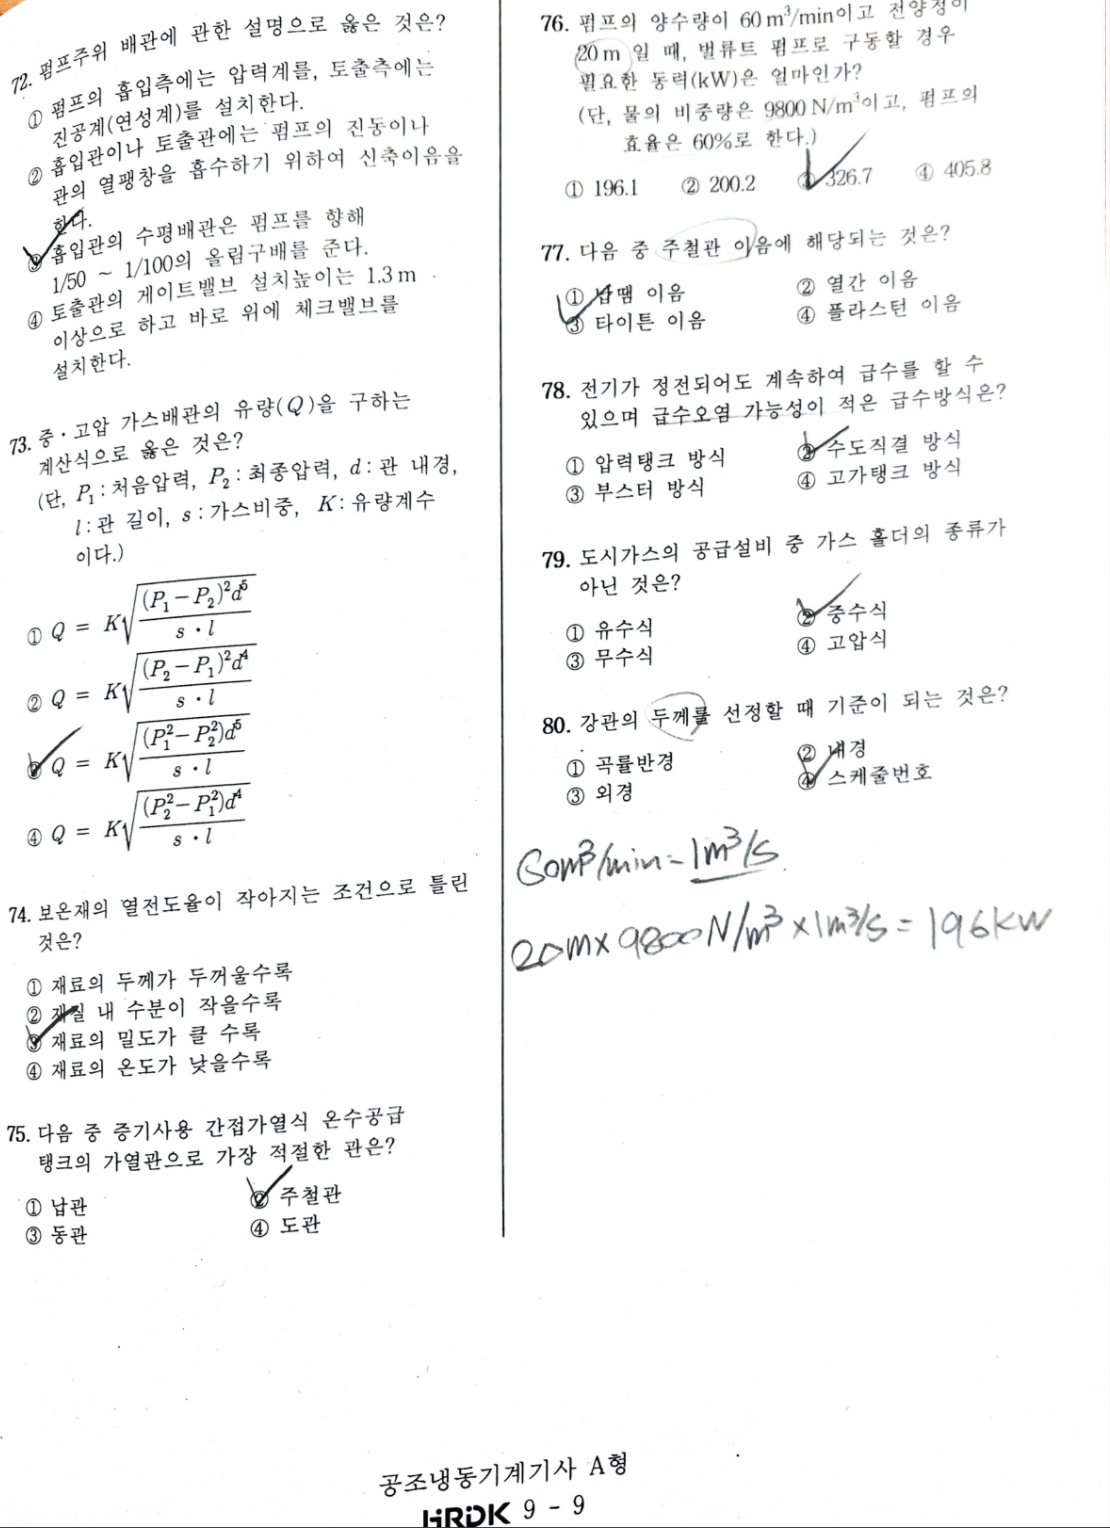 72. 펌프주위 배관에 관한 설명으로 옳은 것은?
① 펌프의 흡입측에는 압력계를, 토출측에는
진공계(연성계)를 설치한다.
② 흡입관이나 토출관에는 펌프의 진동이나
관의 열팽창을 흡수하기 위하여 신축이음을
한다.
③ 흡입관의 수평배관은 펌프를 향해
1/50 ~ 1/100의 올림구배를 준다.
④ 토출관의 게이트밸브 설치높이는 1.3 m
이상으로 하고 바로 위에 체크밸브를
설치한다.
73. 중·고압 가스배관의 유량(Q)을 구하는
계산식으로 옳은 것은?
(단, P₁ : 처음압력, P₂ : 최종압력, d : 관 내경,
l : 관 길이, s : 가스비중, K : 유량계수
이다.)
① Q = K√((P₁ − P₂)²d⁵ / s · l)
② Q = K√((P₂ − P₁)²d⁴ / s · l)
③ Q = K√((P₁² − P₂²)d⁵ / s · l)
④ Q = K√((P₂² − P₁²)d⁴ / s · l)
74. 보온재의 열전도율이 작아지는 조건으로 틀린
것은?
① 재료의 두께가 두꺼울수록
② 재질 내 수분이 작을수록
③ 재료의 밀도가 클 수록
④ 재료의 온도가 낮을수록
75. 다음 중 증기사용 간접가열식 온수공급
탱크의 가열관으로 가장 적절한 관은?
① 납관 ② 주철관
③ 동관 ④ 도관
76. 펌프의 양수량이 60 m³/min이고 전양정이
20 m 일 때, 벌류트 펌프로 구동할 경우
필요한 동력(kW)은 얼마인가?
(단, 물의 비중량은 9800 N/m³이고, 펌프의
효율은 60%로 한다.)
① 196.1 ② 200.2 ③ 326.7 ④ 405.8
77. 다음 중 주철관 이음에 해당되는 것은?
① 납땜 이음 ② 열간 이음
③ 타이튼 이음 ④ 플라스턴 이음
78. 전기가 정전되어도 계속하여 급수를 할 수
있으며 급수오염 가능성이 적은 급수방식은?
① 압력탱크 방식 ② 수도직결 방식
③ 부스터 방식 ④ 고가탱크 방식
79. 도시가스의 공급설비 중 가스 홀더의 종류가
아닌 것은?
① 유수식 ② 중수식
③ 무수식 ④ 고압식
80. 강관의 두께를 선정할 때 기준이 되는 것은?
① 곡률반경 ② 내경
③ 외경 ④ 스케줄번호
60m³/min = 1m³/s
20m × 9800 N/m³ × 1m³/s = 196kW
공조냉동기계기사 A형
HRDK 9 - 9